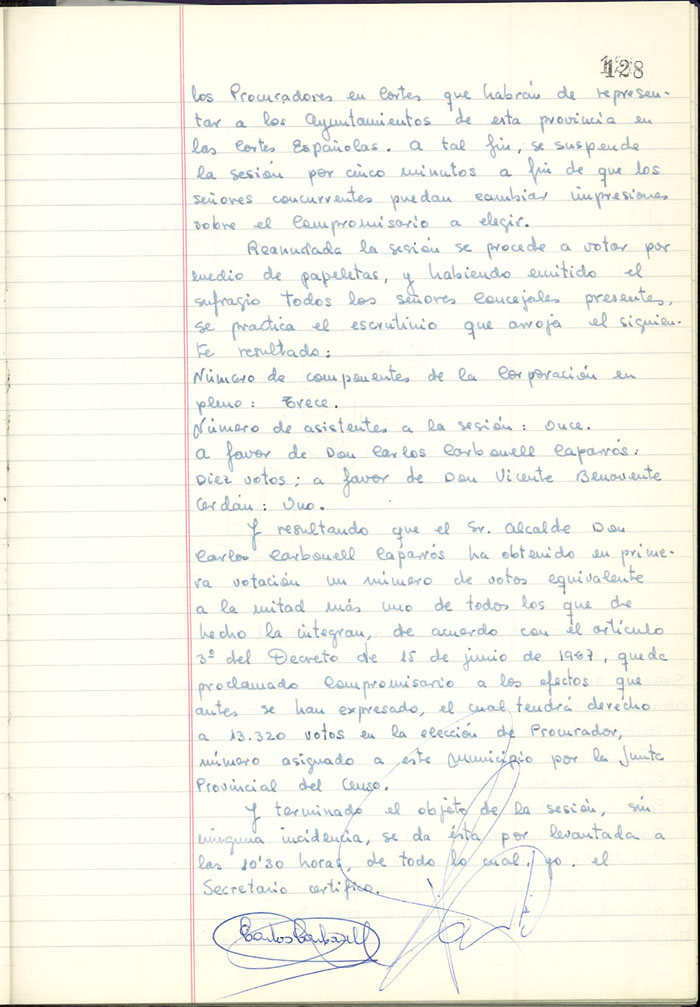 128
los Procuradores en Cortes que habrán de represen-
tar a los Ayuntamientos de esta provincia en
las Cortes Españolas. A tal fin, se suspende
la sesión por cinco minutos a fin de que los
señores concurrentes puedan cambiar impresiones
sobre el Compromisario a elegir.
Reanudada la sesión se procede a votar por
medio de papeletas, y habiendo emitido el
sufragio todos los señores Concejales presentes,
se practica el escrutinio que arroja el siguien-
te resultado:
Número de componentes de la Corporación en
pleno: Trece.
Número de asistentes a la sesión: Once.
A favor de Don Carlos Carbonell Caparrós:
Diez votos; a favor de Don Vicente Benavente
Cerdán: Uno.
Y resultando que el Sr. Alcalde Don
Carlos Carbonell Caparrós ha obtenido en prime-
ra votación un número de votos equivalente
a la mitad más uno de todos los que de
hecho la integran, de acuerdo con el artículo
3º del Decreto de 15 de junio de 1967, queda
proclamado Compromisario a los efectos que
antes se han expresado, el cual tendrá derecho
a 13.320 votos en la elección de Procurador,
número asignado a este Municipio por la Junta
Provincial del Censo.
Y terminado el objeto de la sesión, sin
ninguna incidencia, se da ésta por levantada a
las 10'30 horas, de todo lo cual, yo, el
Secretario certifico.
Carlos Carbonell